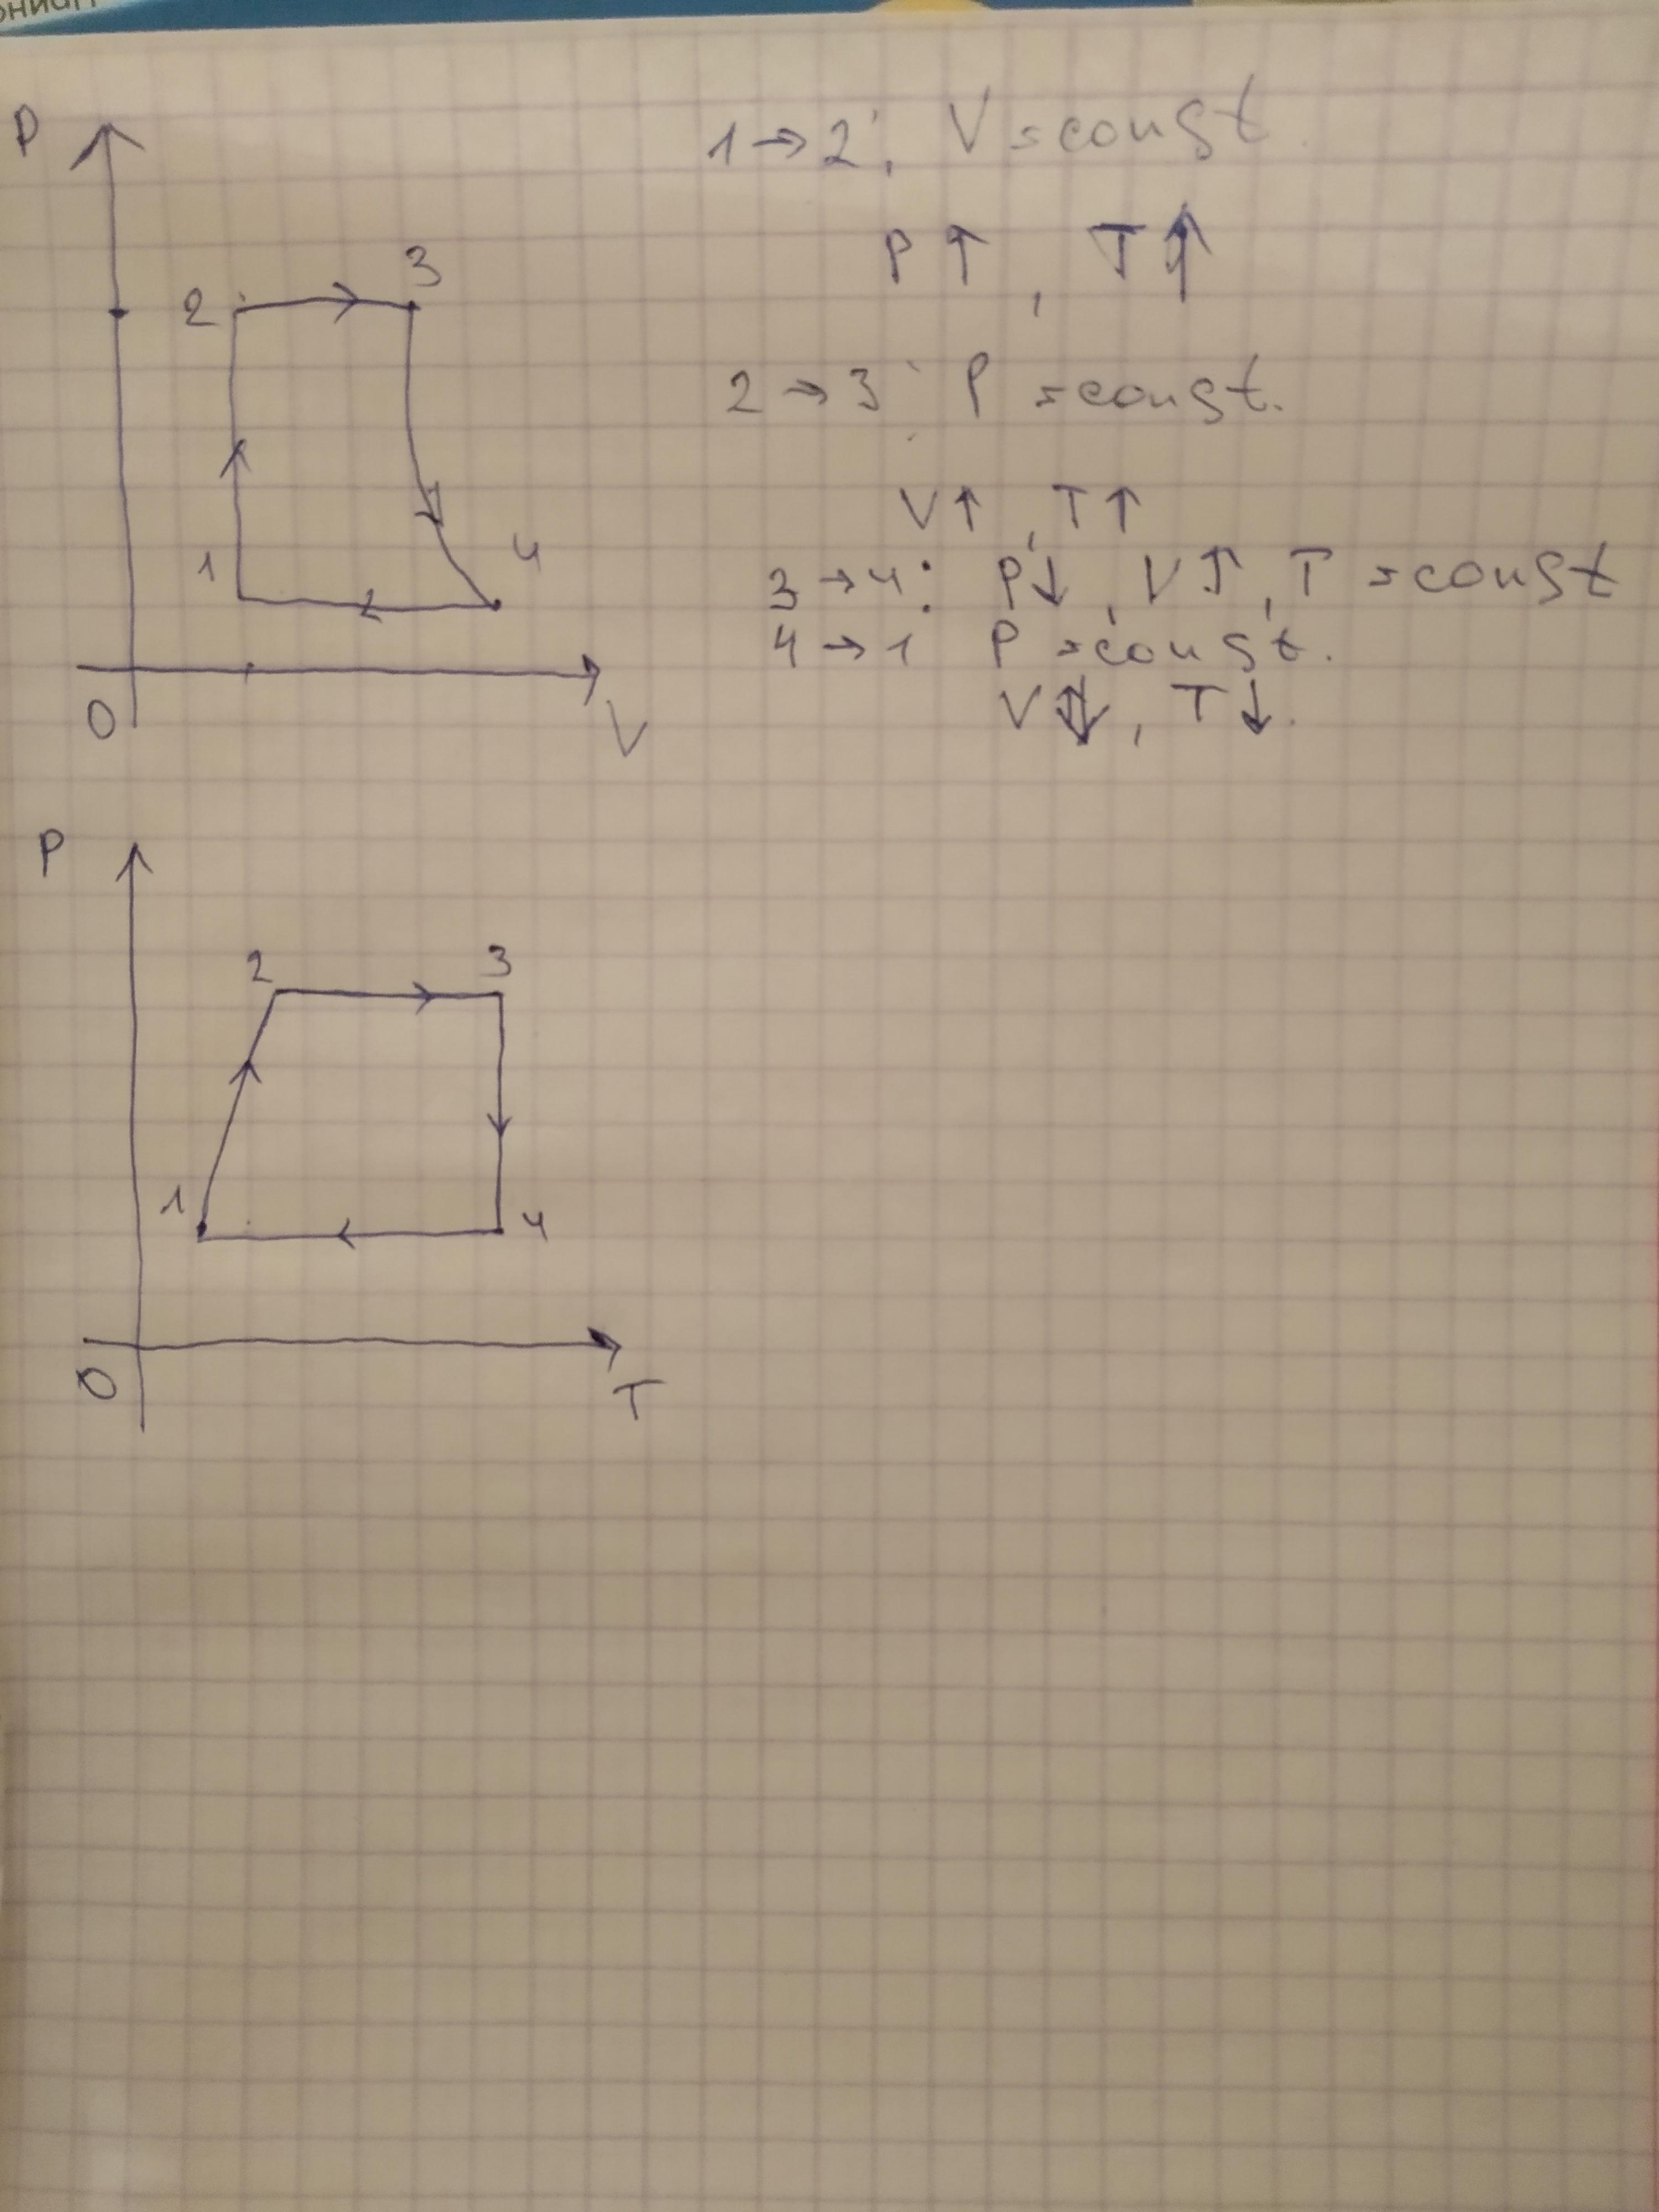 P
1→2: V=const.
P↑, T↑
3
2
2→3: P=const.
V↑, T↑
1
4
3→4: P↓, V↑, T=const
4→1 P=const.
V↓, T↓.
0
V
P
2
3
1
4
0
T